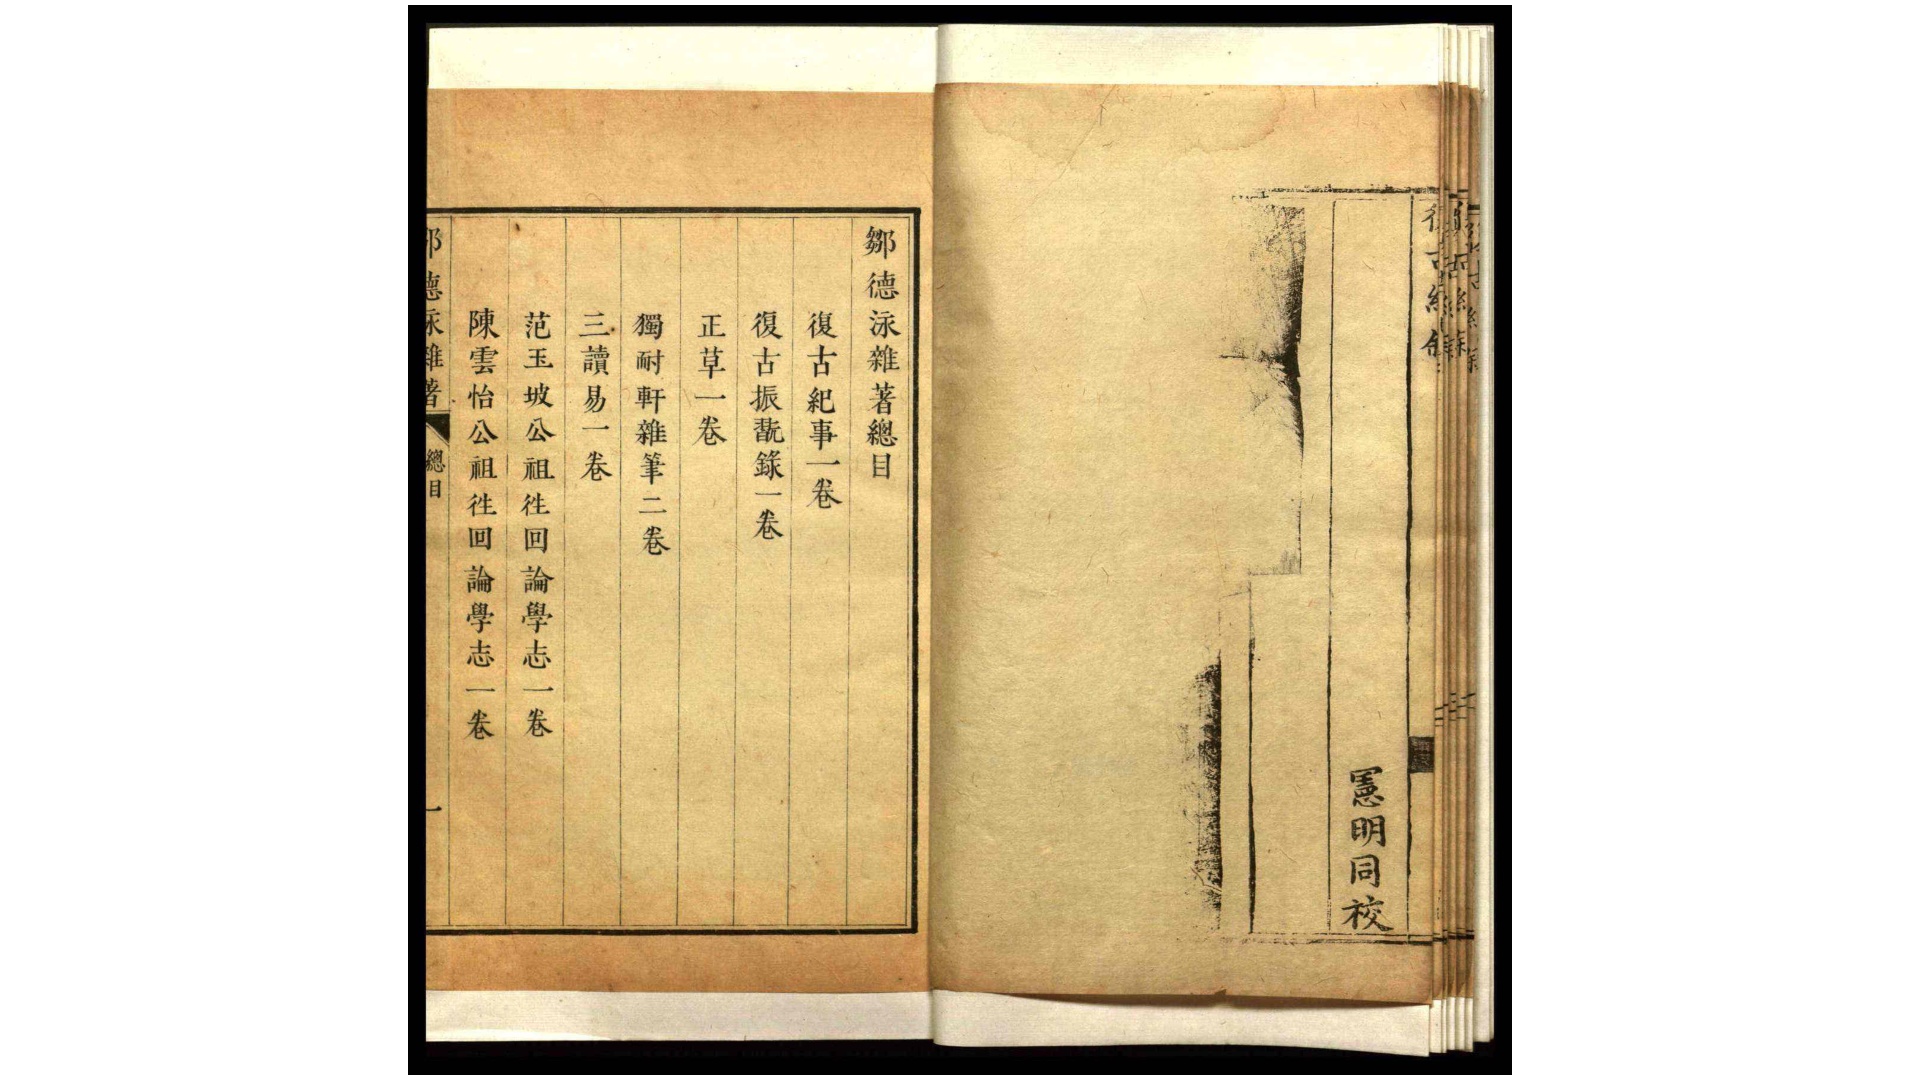 憲明同校
鄒德泳雜著總目
復古紀事一卷
復古振翫錄一卷
正草一卷
獨耐軒雜筆二卷
三讀易一卷
范玉坡公祖徃回論學志一卷
陳雲怡公祖徃回論學志一卷
鄒德泳雜著 總目 一